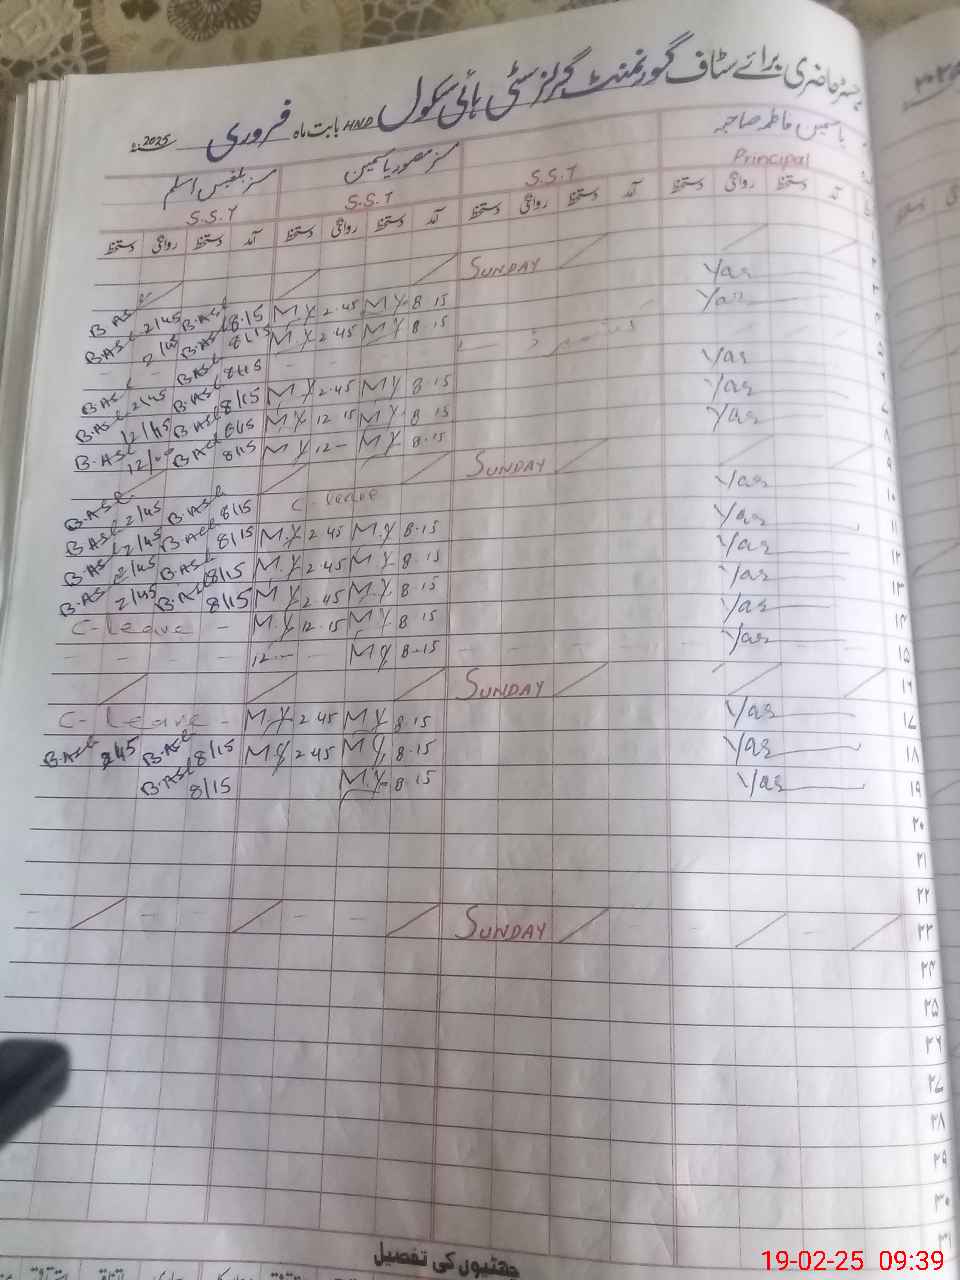 رجسٹر حاضری برائے سٹاف گورنمنٹ گرلز سٹی ہائی سکول HND بابت ماہ فروری 2025ء
یاسمین فاطمہ صاحبہ مسز منصور یاسمین مسز بلقیس اسلم
Principal S.S.T S.S.T S.S.T
آمد دستخط روانگی دستخط آمد دستخط روانگی دستخط آمد دستخط روانگی دستخط آمد دستخط روانگی دستخط
۲ SUNDAY
۳ Yas 8.15 M.Y 2.45 M.Y 8.15 B.Asl 2/45 B.Asl
۴ Yas 8.15 M.Y 2.45 M.Y 8/15 B.Asl 2/45 B.Asl
۵
۶ Yas 8.15 M.Y 2.45 M.Y 8/15 B.Asl 2/45 B.Asl
۷ Yas 8.15 M.Y 12.15 M.Y 8/15 B.Asl 12/15 B.Asl
۸ Yas 8.15 M.Y 12 M.Y 8/15 B.Asl B.Asl
۹ SUNDAY
۱۰ Yas C-leave 8/15 B.Asl 2/45 B.Asl
۱۱ Yas 8.15 M.Y 2.45 M.Y 8/15 B.Asl 2/45 B.Asl
۱۲ Yas 8.15 M.Y 2.45 M.Y 8/15 B.Asl 2/45 B.Asl
۱۳ Yas 8.15 M.Y 2.45 M.Y 8/15 B.Asl 2/45 B.Asl
۱۴ Yas 8.15 M.Y 12.15 M.Y C-leave
۱۵ Yas 8.15 M.Y 12
۱۶ SUNDAY
۱۷ Yas 8.15 M.Y 2.45 M.Y C-leave
۱۸ Yas 8.15 M.Y 2.45 M.Y 8/15 B.Asl 2/45 B.Asl
۱۹ Yas 8.15 M.Y 8/15 B.Asl
۲۰
۲۱
۲۲
۲۳ SUNDAY
۲۴
۲۵
۲۶
۲۷
۲۸
۲۹
۳۰
۳۱
چھٹیوں کی تفصیل
19-02-25 09:39